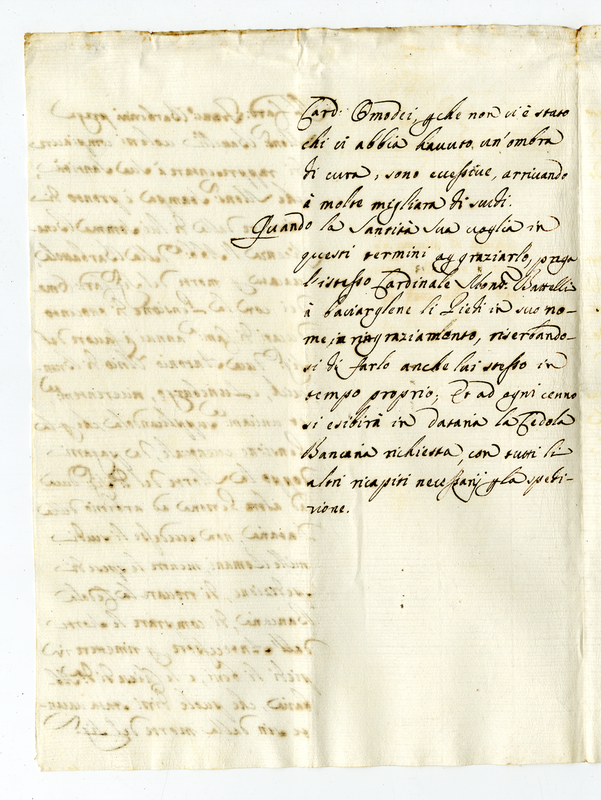 Card: Omodei, p che non vi è stato
chi vi abbia havuto un'ombra
di cura, sono eccessive, arrivando
à molte migliara di scudi.
Quando la Santità Sua voglia in
questi termini aggraziarlo, prega
l'istesso Cardinale Mons.r Battelli
à baciarglene li Piedi in suo no-
me, in ringraziamento, riserbando-
si di farlo anche lui stesso in
tempo proprio; Et ad ogni cenno
si esibirà in Dataria la Cedola
Bancaria richiesta, con tutti li
altri ricapiti necessarij p la spedi-
zione.